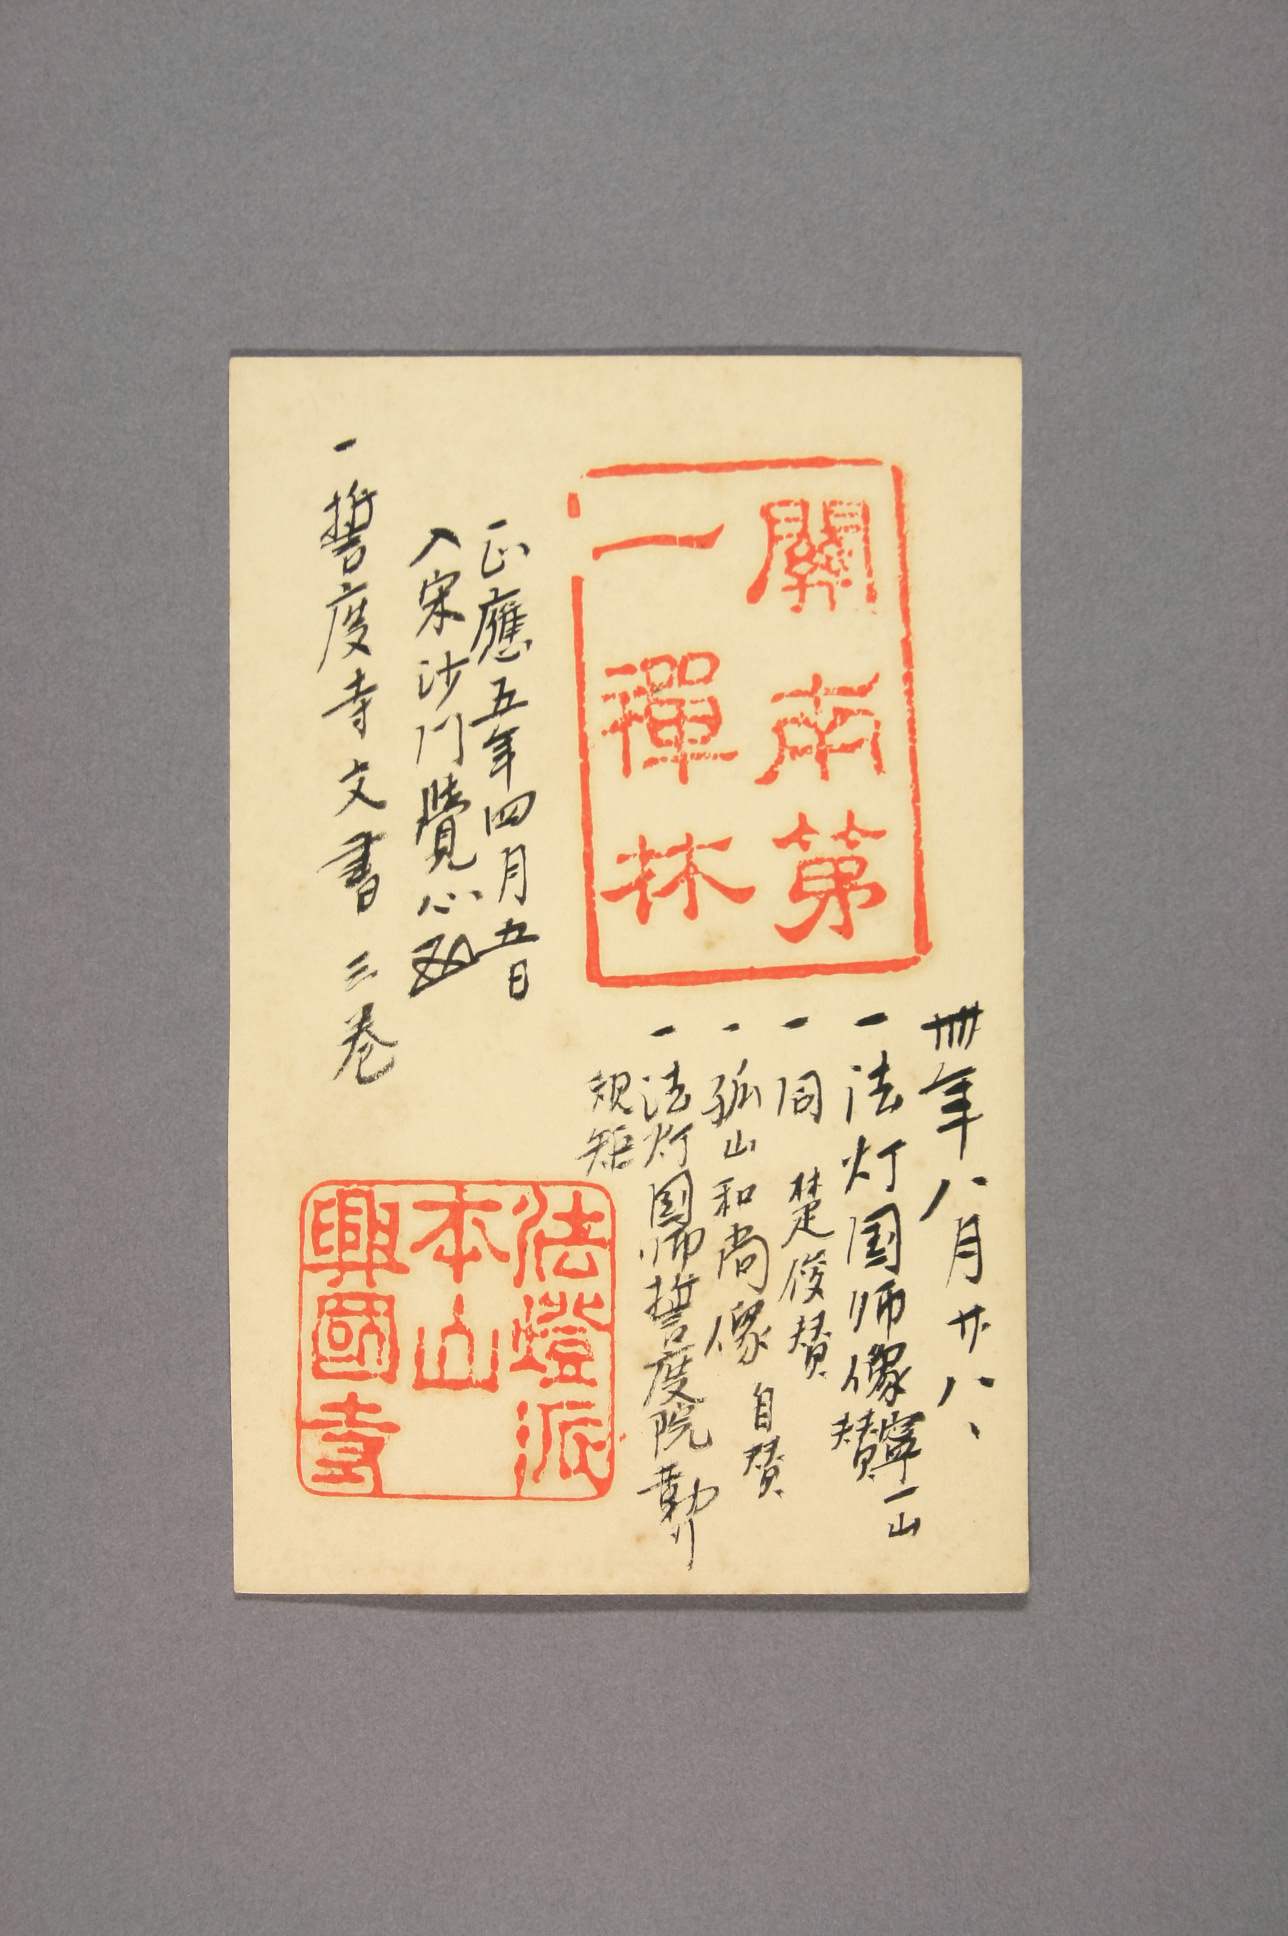 關南第
一禪林
卌年八月廿八、
一法灯国师像 寧一山
賛
一同 楚俊賛
一孤山和尚像 自賛
一法灯国师誓度院
規矩
正應五年四月五日
入宋沙門覺心
一誓度寺文書三卷
法燈派
本山
興國寺